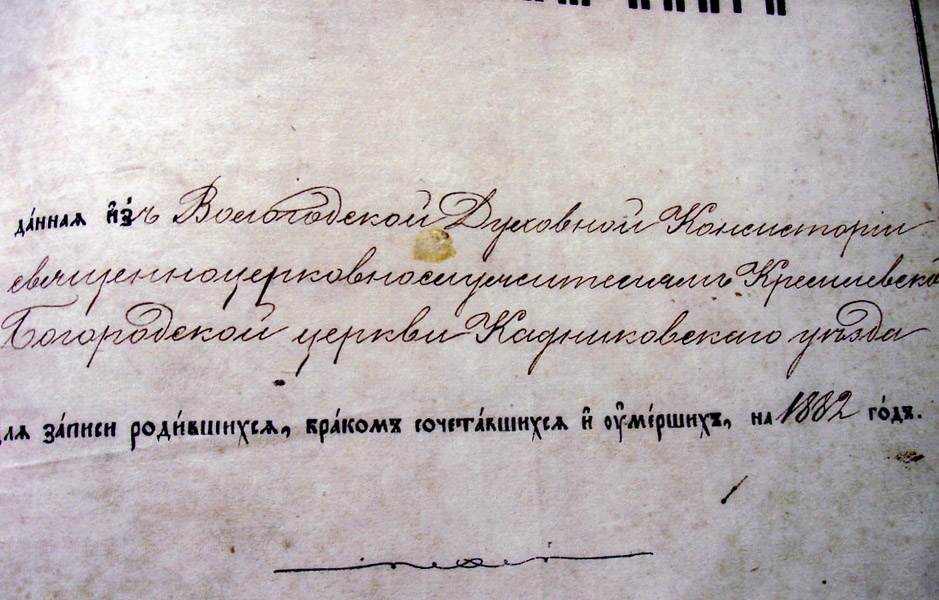 да́нная и҆з̾ъ Вологодской Духовной Консисторіи
священноцерковнослужителямъ Кремлевско
Богородской церкви Кадниковскаго уѣзда
для за́писи роди́вшихся, бра́комъ сочета́вшихся и҆ оу҆ме́ршихъ, на 1882 го́дъ.